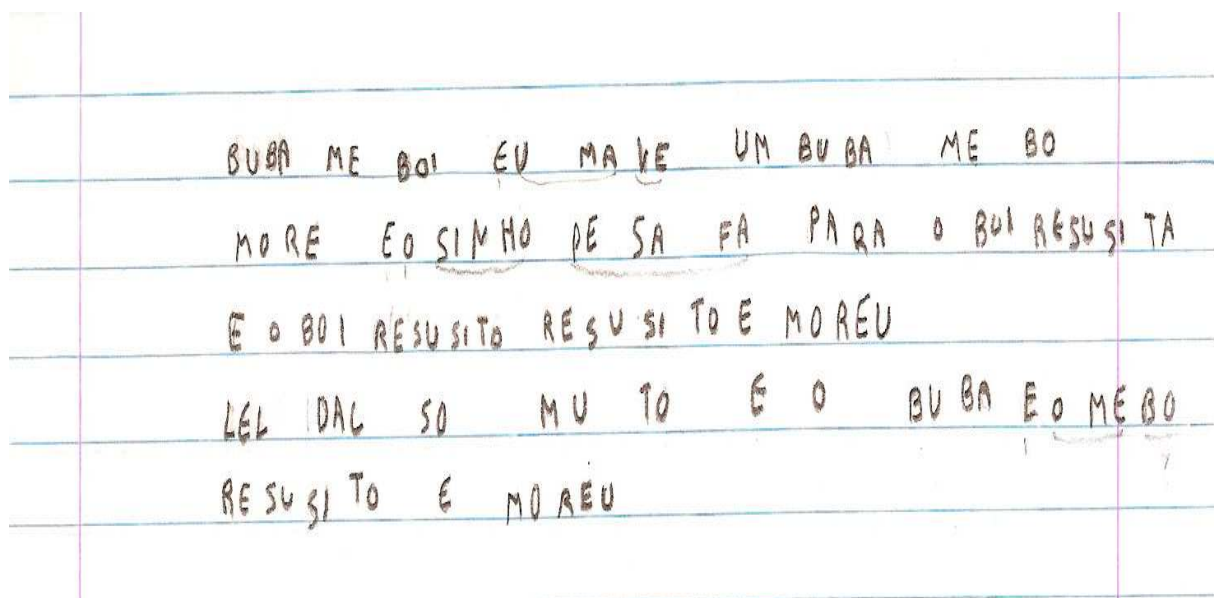 BUBA ME BOI EU MA VE UM BU BA ME BO
MORE EO SINHO PE SA FA PARA O BOI RESUSITA
E O BOI RESUSITO RESUSITO E MOREU
LEL DAL SO MU TO E O BUBA EO ME BO
RESUSITO E MOREU